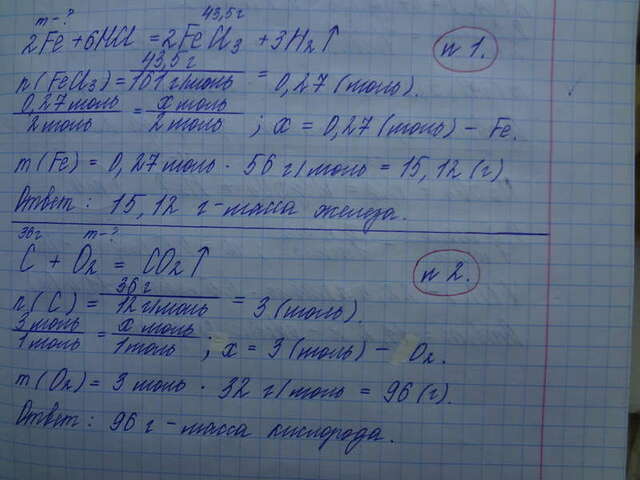 m-? 43,5г
2Fe + 6HCl = 2FeCl3 + 3H2↑
n 1.
n(FeCl3) = 43,5 г / 161 г/моль = 0,27 (моль).
0,27 моль / 2 моль = x моль / 2 моль ; x = 0,27 (моль) - Fe.
m(Fe) = 0,27 моль · 56 г/моль = 15,12 (г).
Ответ: 15,12 г - масса железа.
36г m-?
C + O2 = CO2↑
n 2.
n(C) = 36 г / 12 г/моль = 3 (моль).
3 моль / 1 моль = x моль / 1 моль ; x = 3 (моль) - O2.
m(O2) = 3 моль · 32 г/моль = 96 (г).
Ответ: 96 г - масса кислорода.